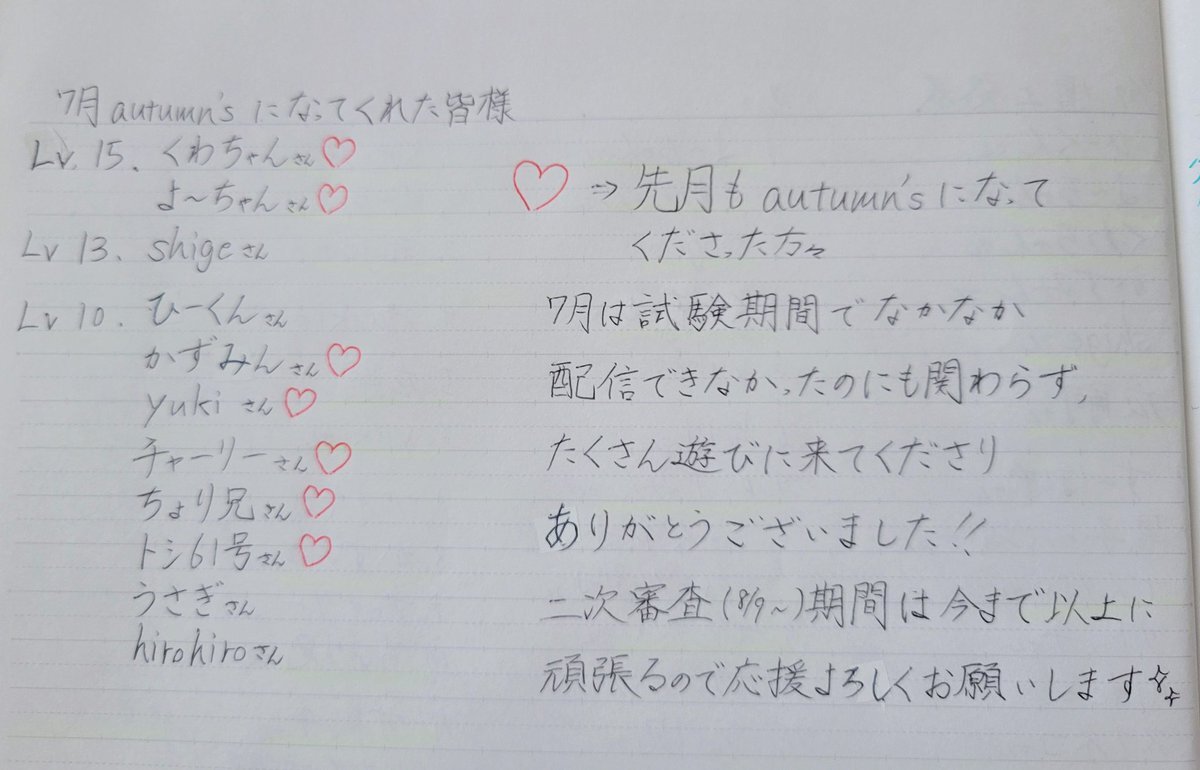 7月autumn'sになってくれた皆様
Lv.15.くわちゃんさん♡
よ〜ちゃんさん♡
Lv 13. shigeさん
Lv 10.ひーくんさん
かずみんさん♡
yukiさん♡
チャーリーさん♡
ちょり兄さん♡
トシ61号さん♡
うさぎさん
hirohiroさん
♡⇒先月もautumn'sになって
くださった方々
7月は試験期間でなかなか
配信できなかったのにも関わらず,
たくさん遊びに来てくださり
ありがとうございました!!
二次審査(8/9~)期間は今まで以上に
頑張るので応援よろしくお願いします✨